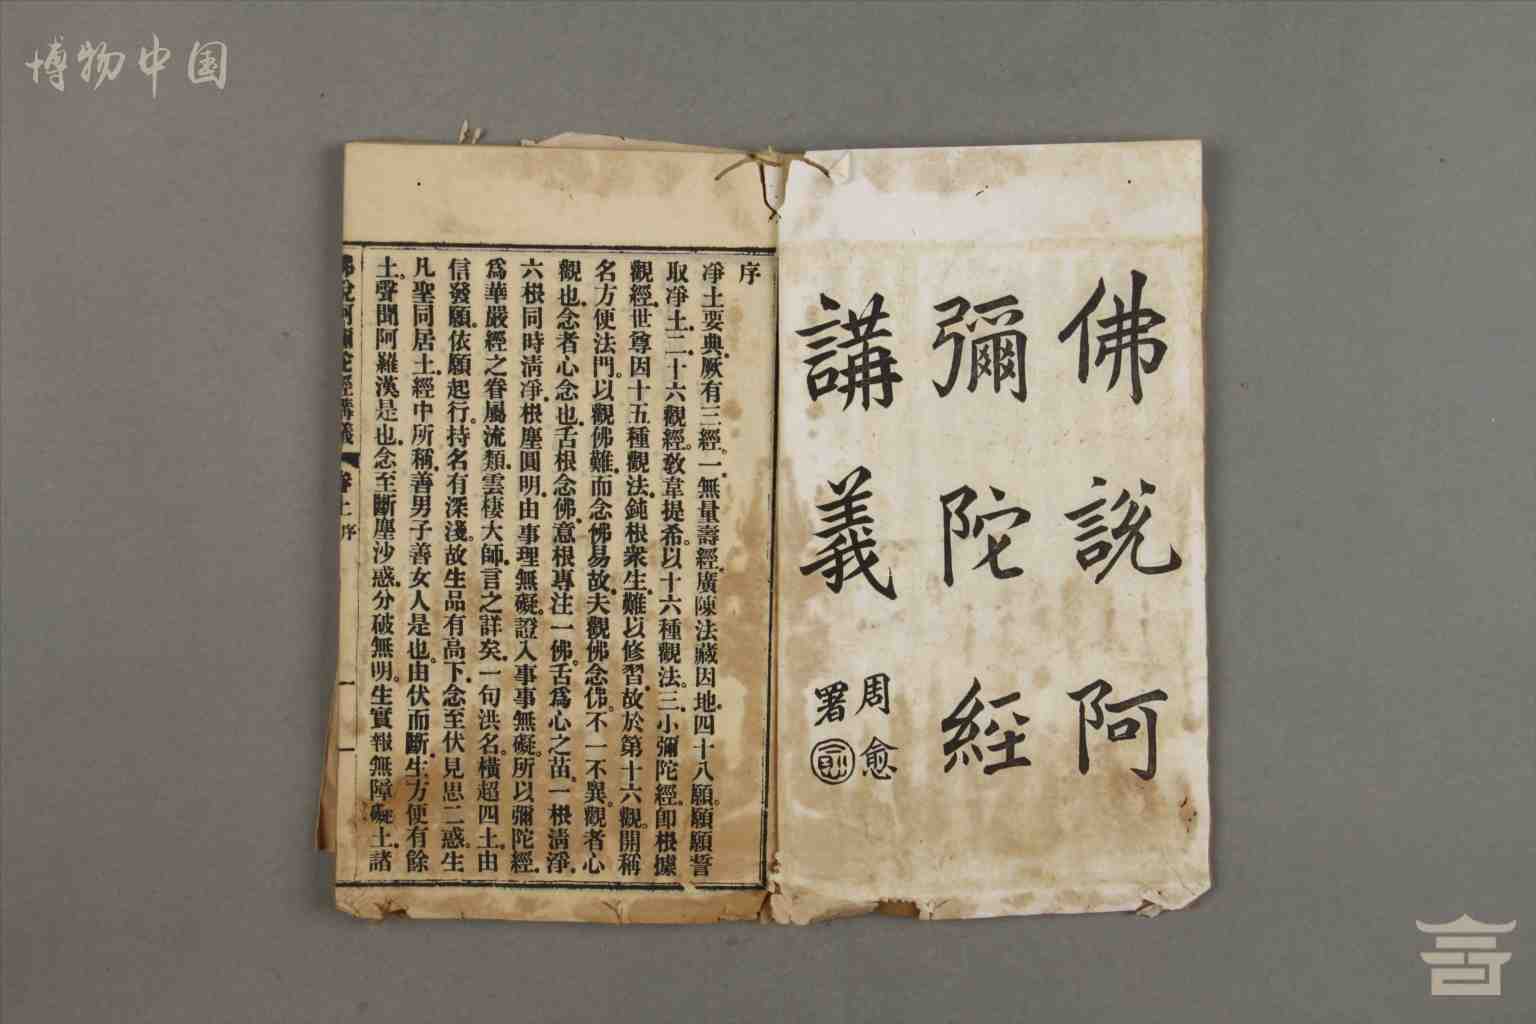 博物中国
佛說阿
彌陀經
講義
周愈
署
序
淨土要典.厥有三經.一無量壽經.廣陳法藏因地.四十八願.願願誓
取淨土.二十六觀經.敎韋提希.以十六種觀法.三小彌陀經.卽根據
觀經.世尊因十五種觀法.鈍根衆生.難以修習.故於第十六觀.開稱
名方便法門.以觀佛難.而念佛易故.夫觀佛念佛.不一不異.觀者心
觀也.念者心念也.舌根念佛.意根專注一佛.舌爲心之苗.一根淸淨.
六根同時淸淨.根塵圓明.由事理無礙.證入事事無礙.所以彌陀經.
爲華嚴經之眷屬流類.雲棲大師.言之詳矣.一句洪名.橫超四土.由
信發願.依願起行.持名有深淺.故生品有高下.念至伏見思二惑.生
凡聖同居土.經中所稱.善男子善女人是也.由伏而斷.生方便有餘
土.聲聞阿羅漢是也.念至斷塵沙惑.分破無明.生實報無障礙土.諸
佛說阿彌陀經講義 卷上序 一